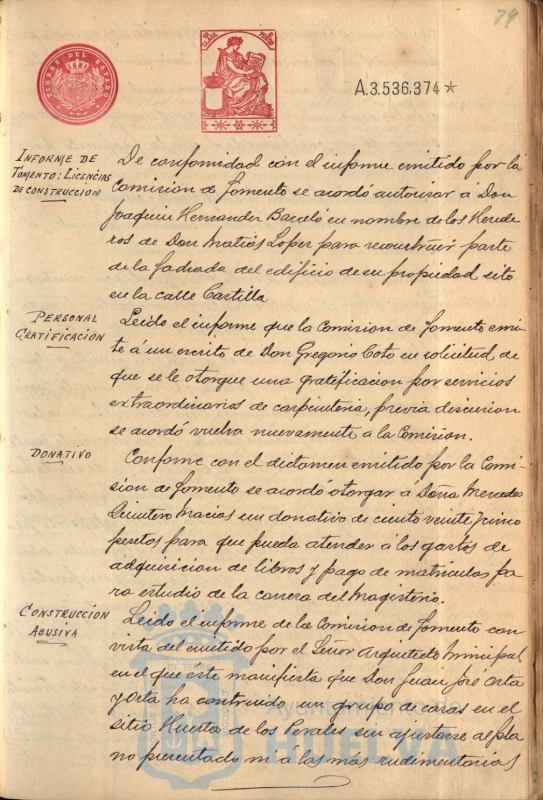 79
TIMBRE DEL ESTADO
A.3.536.374*
INFORME DE
FOMENTO: LICENCIAS
DE CONSTRUCCION
De conformidad con el informe emitido por la
Comision de Fomento se acordó autorizar á Don
Joaquin Hernandez Barceló en nombre de los Herede
ros de Don Matias Lopez para reconstruir parte
de la fachada del edificio de su propiedad sito
en la calle Castilla
PERSONAL
GRATIFICACIÓN
Leido el informe que la Comision de Fomento emi
te á un escrito de Don Gregorio Coto en solicitud de
que se le otorgue una gratificacion por servicios
extraordinarios de carpinteria, previa discusion
se acordó vuelva nuevamente a la Comision.
DONATIVO
Conforme con el dictamen emitido por la Comi-
sion de Fomento se acordó otorgar á Doña Mercedes
Quintero Macias un donativo de ciento veinte y cinco
pesetas para que pueda atender á los gastos de
adquisicion de libros y pago de matriculas pa
ra estudio de la carrera del Magisterio.
CONSTRUCCION
ABUSIVA
Leido el informe de la Comision de Fomento con
vista del emitido por el Señor Arquitecto Municipal
en el que este manifiesta que Don Juan José Orta
y Orta ha construido un grupo de casas en el
sitio Huerta de los Perales sin ajustarse al pla
no presentado ni á las mas rudimentarias
Ayuntamiento
HUELVA